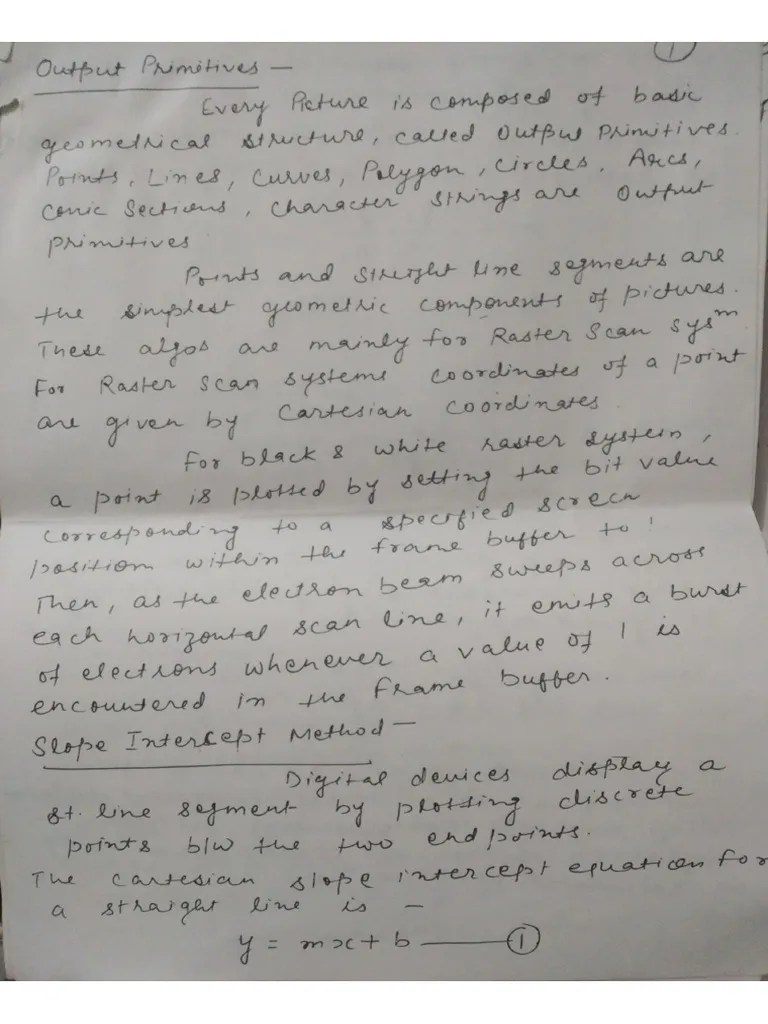 ①
Output Primitives —
Every Picture is composed of basic
geometrical structure, called Output Primitives.
Points, Lines, Curves, Polygon, Circles, Arcs,
Conic Sections, Character Strings are Output
primitives
Points and Streight line segments are
the simplest geometric components of pictures.
These algos are mainly for Raster Scan sysᵐ
For Raster Scan systems coordinates of a point
are given by Cartesian Coordinates.
For black & white raster system,
a point is plotted by setting the bit value
corresponding to a specified screen
position within the frame buffer to 1
Then, as the electron beam sweeps across
each horizontal scan line, it emits a burst
of electrons whenever a value of 1 is
encountered in the frame buffer.
Slope Intercept Method —
Digital devices display a
st. line segment by plotting discrete
points b/w the two endpoints.
The cartesian slope intercept equation for
a straight line is —
y = mx + b —— ①